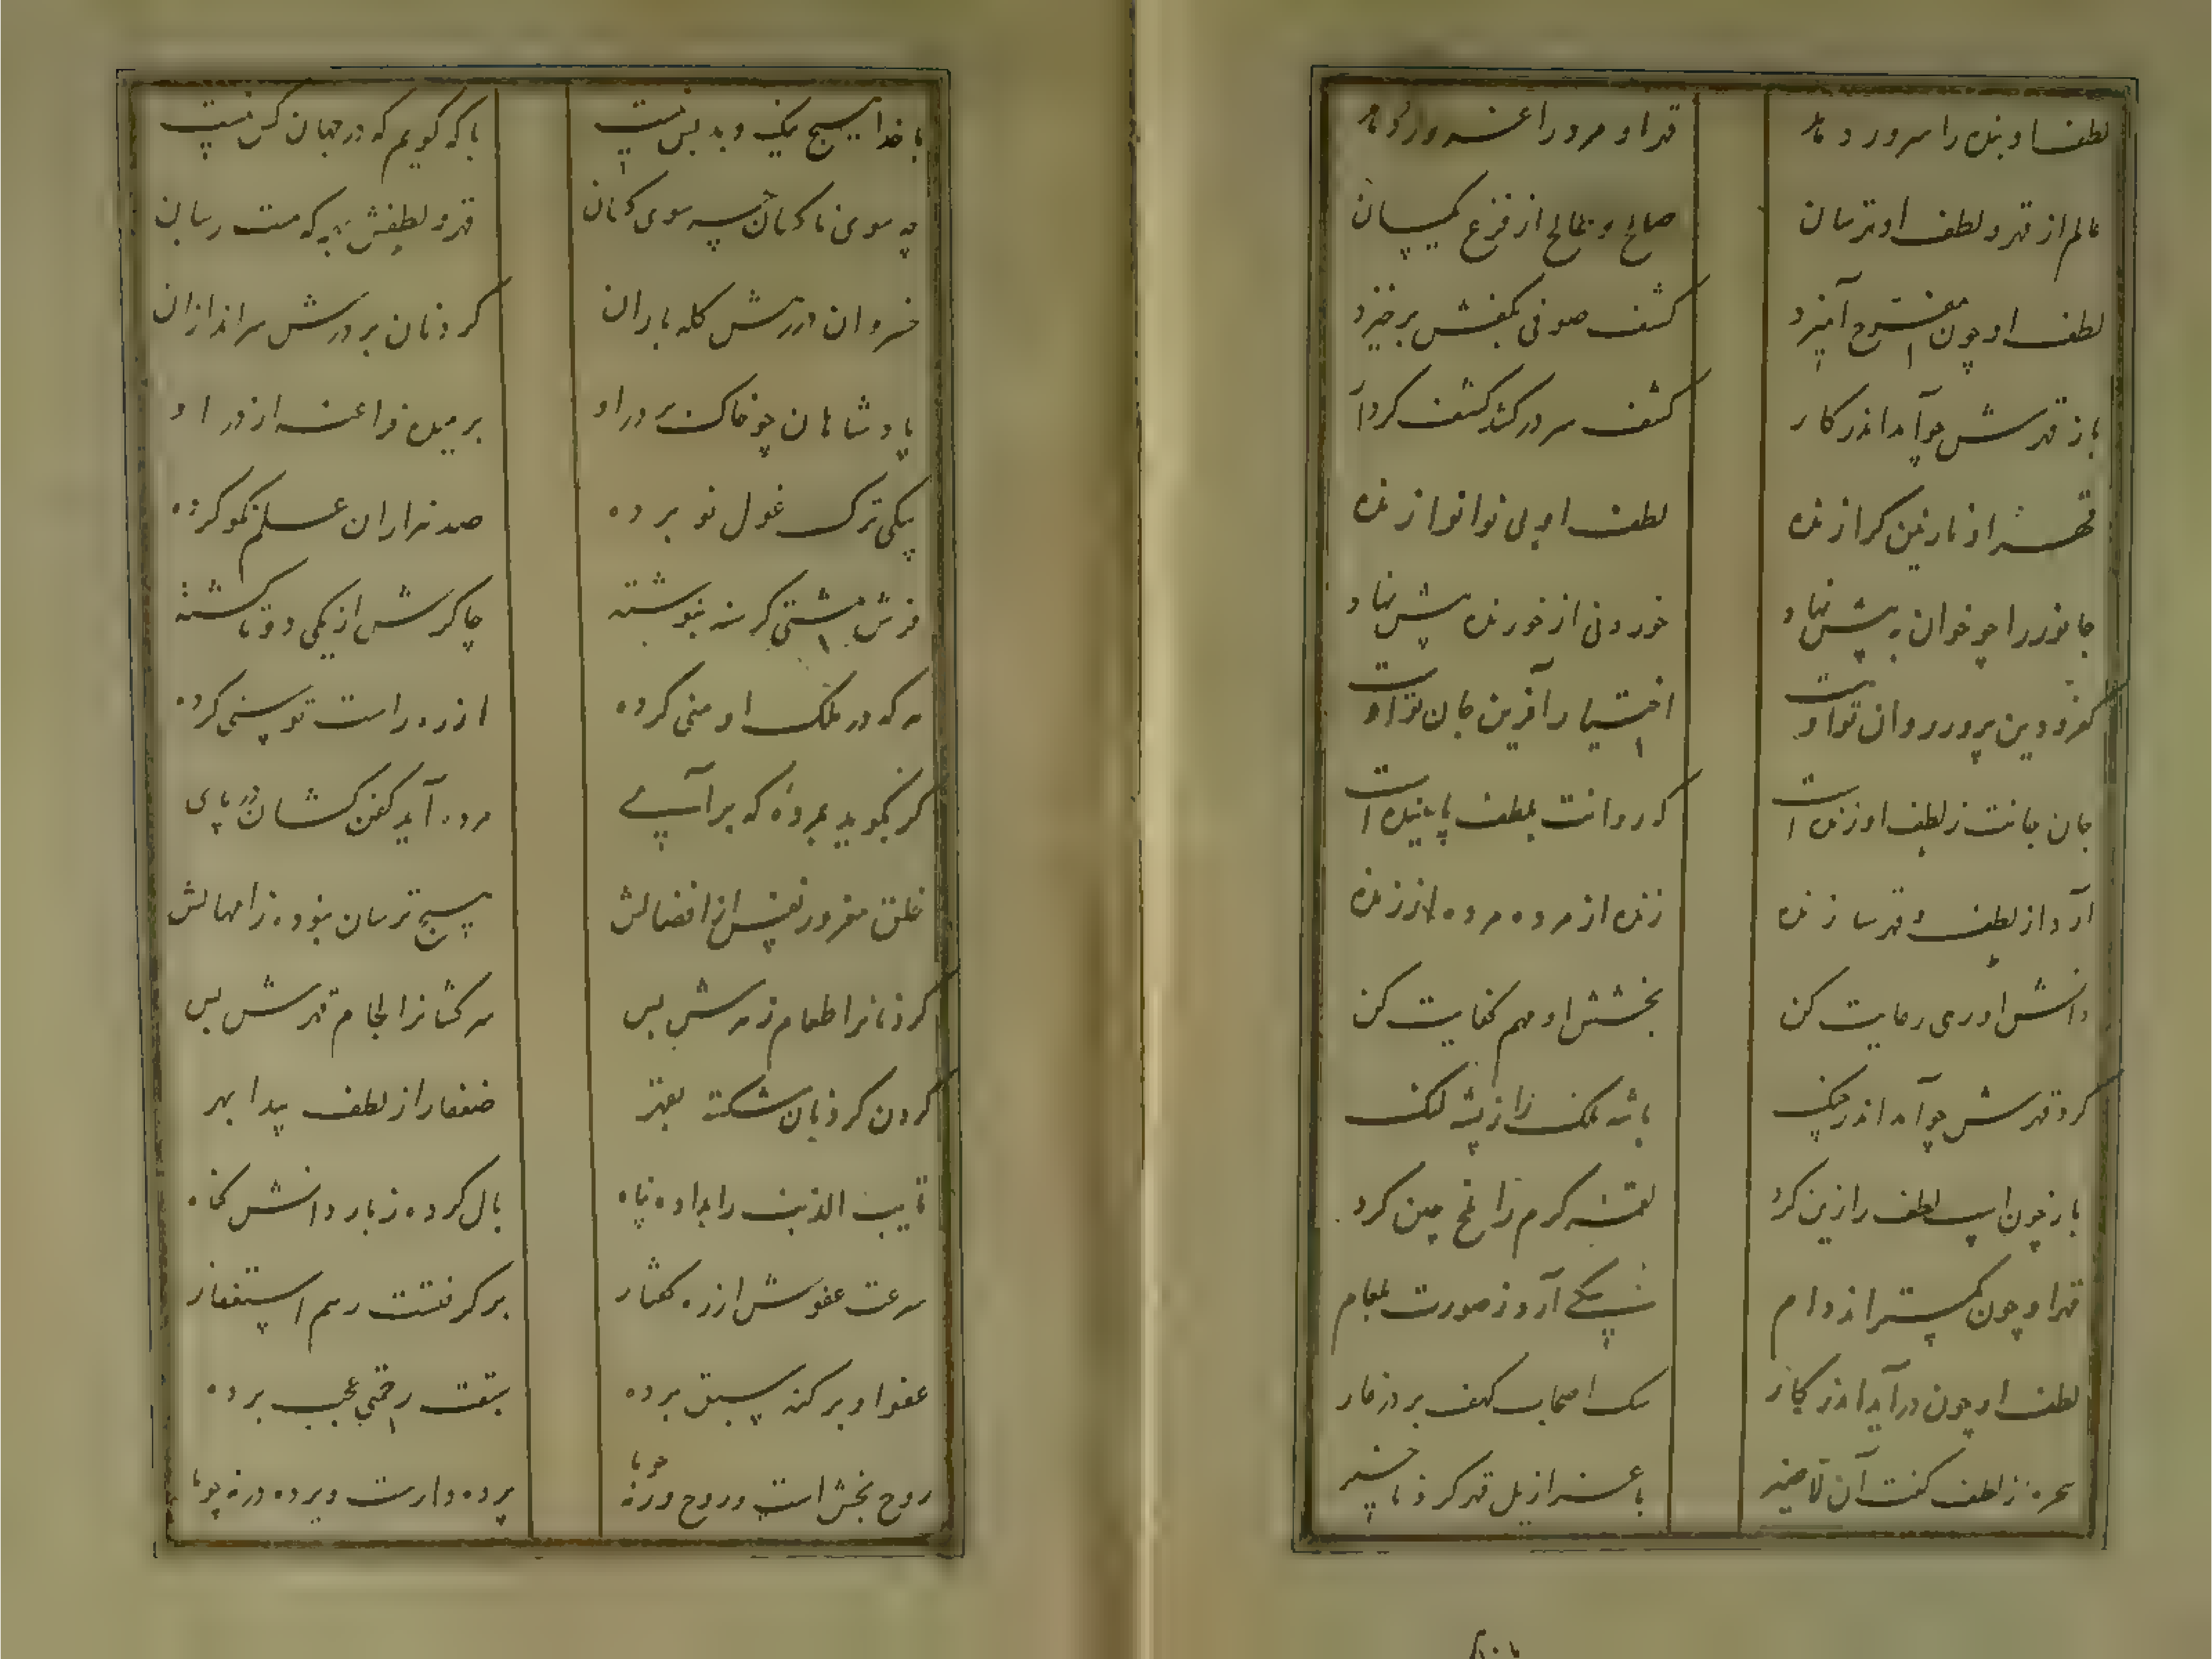 لطف او بنده را سرور دهد
قهر او مرد را غرور دهد
عالم از قهر و لطف او ترسان
صالح و طالح از فزع یکسان
لطف او چون مفرح آمیزد
کشف صوفی بکفش برخیزد
باز قهرش چو آمد اندر کار
کشف سر درکشد کشف کردار
قهر او نازنین گدازنده
لطف او بی نوا نوازنده
جانور را چو خوان به پیش نهاد
خوردنی از خورنده پیش نهاد
کفر و دین پرور روان تو اوست
اختیار آفرین جان تو اوست
جان جانت ز لطف او زنده است
که روانت بلطف پاینده است
آرد از لطف و قهر سازنده
زنده از مرده مرده از زنده
دانش او رهی رعایت کن
بخشش او مهم کفایت کن
کرد قهرش چو آمد اندر جنگ
پشه لنگ
باز چون اسب لطف را زین کرد
لقمه کرم زاغ چین کرد
قهر او چون بگستراند دام
سگی آرد ز صورت بلعام
لطف او چون درآید اندر کار
سگ اصحاب کهف برد ز غار
سحره از لطف گفت آن لاضیر
با عزازیل قهر کرد اناخیر
با خدا هیچ نیک و بد بس نیست
با که گویم که در جهان کس نیست
چه سوی ناکسان چه سوی کسان
قهر و لطفش به هر که هست رسان
خسروان در رهش کله بازان
گردنان بر درش سراندازان
پادشاهان چو خاک بر در او
برمیده فراعنه از در او
بیکی ترک غول نو برده
صد هزاران علم نگو کرده
مشتی گرسنه بنوشته
چاکرش از یکی دو تا گشته
هر که در ملک او منی کرده
از ره راست توسنی کرده
گر بگوید بمرده که برآی
مرده آید کفن کشان در پای
خلق مغرور نفس از افضالش
هیچ ترسان نبوده ز امهالش
گردنانرا طعام زهرش بس
سرکشانرا لجام قهرش بس
گردن گردنان شکسته بقهر
ضعفا را ز لطف پیدا بهر
تایب الذنب را بداده پناه
پاک کرده ز بار دانش گناه
سرعت عفوش از ره گفتار
برگرفتست رسم استغفار
عفو او بر گنه سبق برده
سبقت رحمتی عجب برده
روح بخش است و روح ورنه چو ما
پرده دارست و پرده در نه چو ما